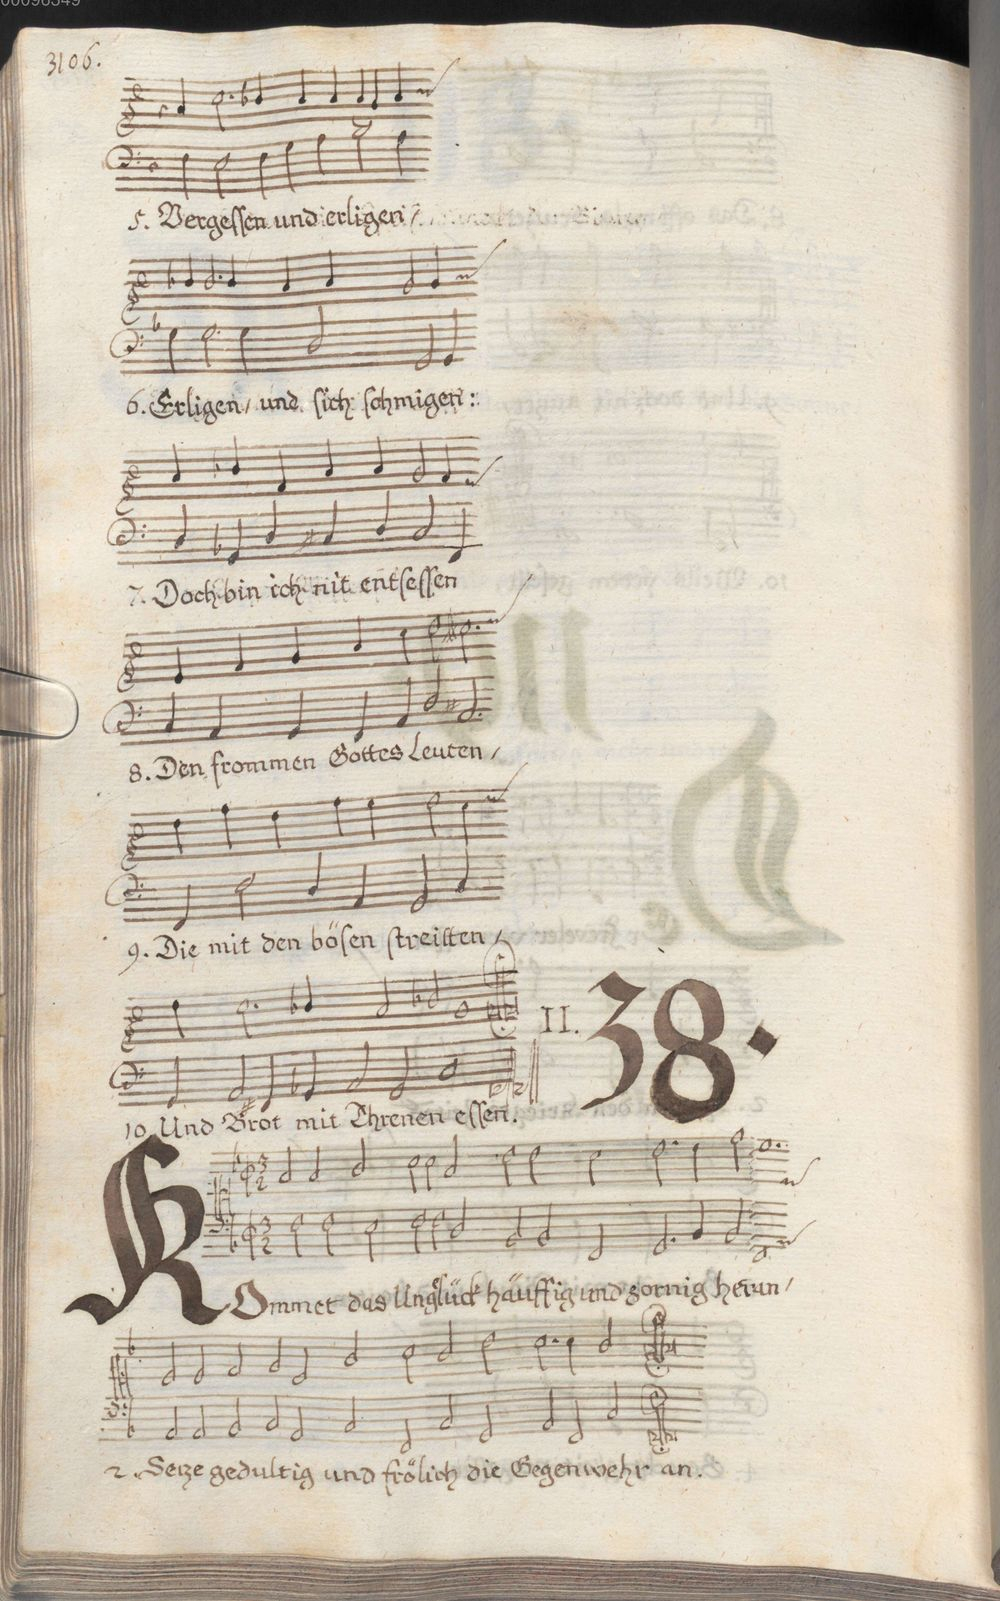 3106.
5. Vergessen und erligen /
6. Erligen, und sich schmigen :
7. Doch bin ich nit entsessen
8. Den frommen Gottes Leuten /
9. Die mit den bösen streitten /
II. 38.
10. Und Brot mit Threnen essen.
KOmmet das Unglück häuffig und zornig heran /
2. Setze gedultig und frölich die Gegenwehr an.